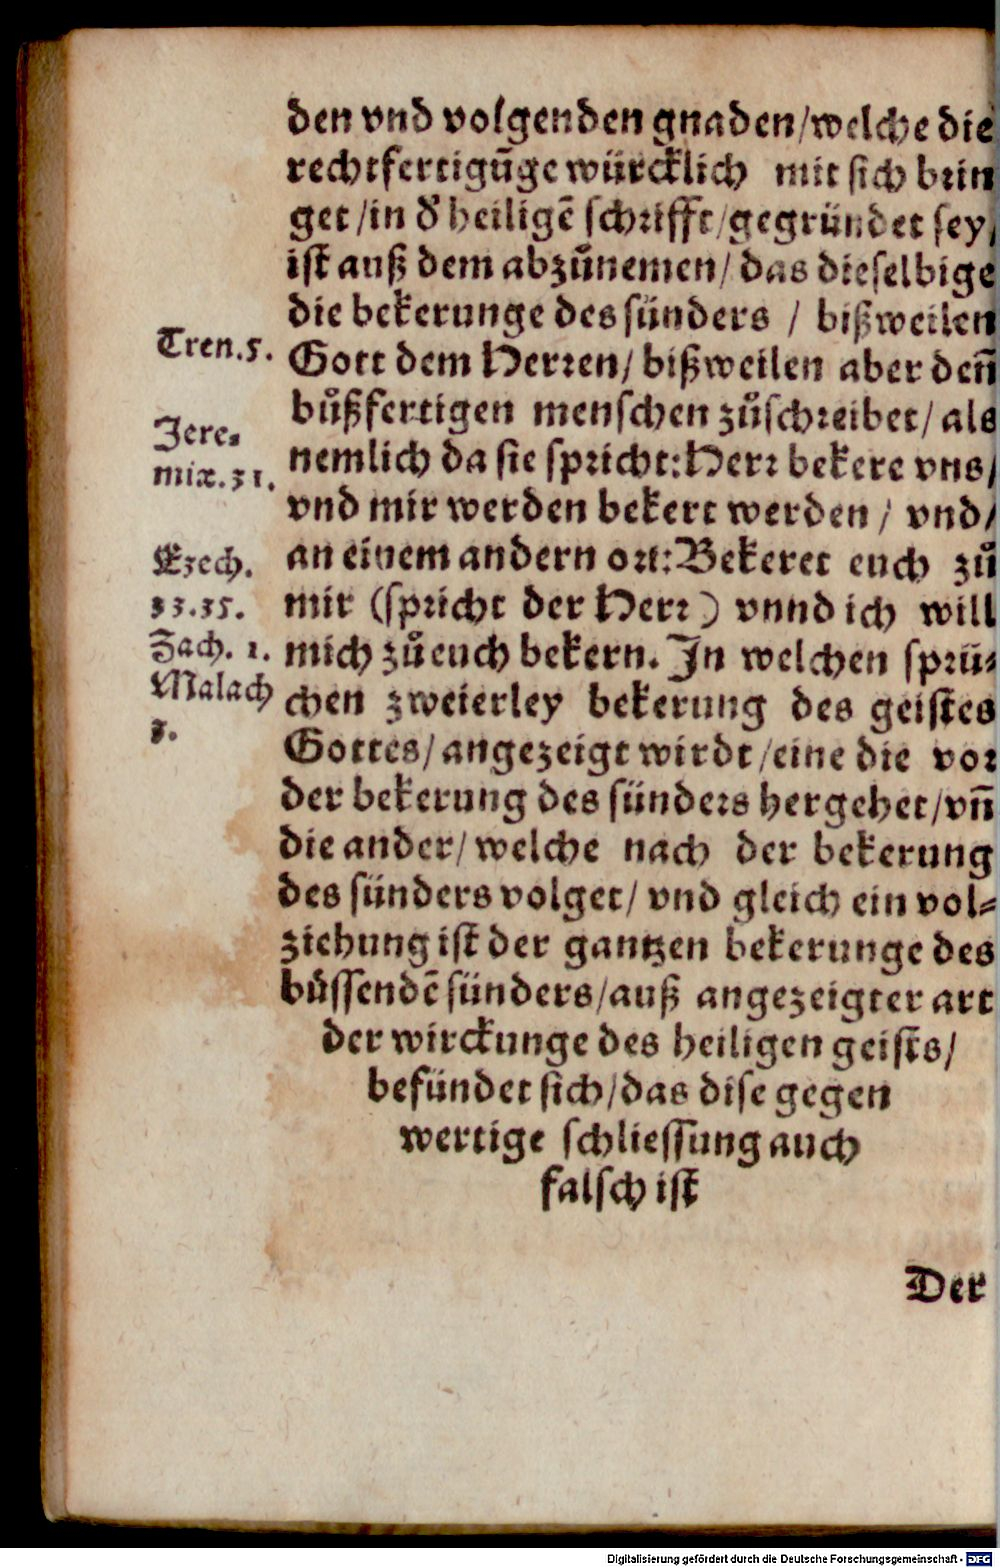 den vnd volgenden gnaden/welche die
rechtfertigūge würcklich mit sich brin
get/in d' heiligē schrifft/gegründet sey/
ist auß dem abzůnemen/das dieselbige
die bekerunge des sünders / bißweilen
Tren.5.
Gott dem Herren/bißweilen aber den̄
bůßfertigen menschen zůschreibet/als
Jere-
nemlich da sie spricht:Herr bekere vns/
miæ.31.
vnd mir werden bekert werden / vnd/
Ezech.
an einem andern ort:Bekeret euch zů
33.35.
mir (spricht der Herr) vnnd ich will
Zach. 1.
mich zů euch bekern. In welchen sprü-
Malach
chen zweierley bekerung des geistes
3.
Gottes/angezeigt wirdt/eine die vor
der bekerung des sünders hergehet/vn̄
die ander/welche nach der bekerung
des sünders volget/ vnd gleich ein vol-
ziehung ist der gantzen bekerunge des
bůssendē sünders/auß angezeigter art
der wirckunge des heiligen geists/
befündet sich/das dise gegen
wertige schliessung auch
falsch ist
Der
Digitalisierung gefördert durch die Deutsche Forschungsgemeinschaft - DFG